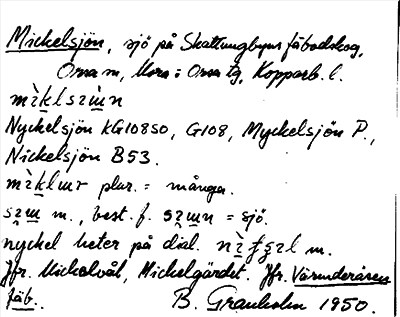 Mickelsjön, sjö på Skattungbyns fäbodskog,
Orsa sn, Mora o Orsa tg, Kopparb. l.
Nyckelsjön KG10850, G108, Myckelsjön P.,
Nickelsjön B53.
plur. = många.
m., best. f. = sjö.
nyckel heter på dial. m.
Jfr. Mickelvål, Mickelgärdet. Jfr. Våsunderåsen
fäb. B. Granholm 1950.